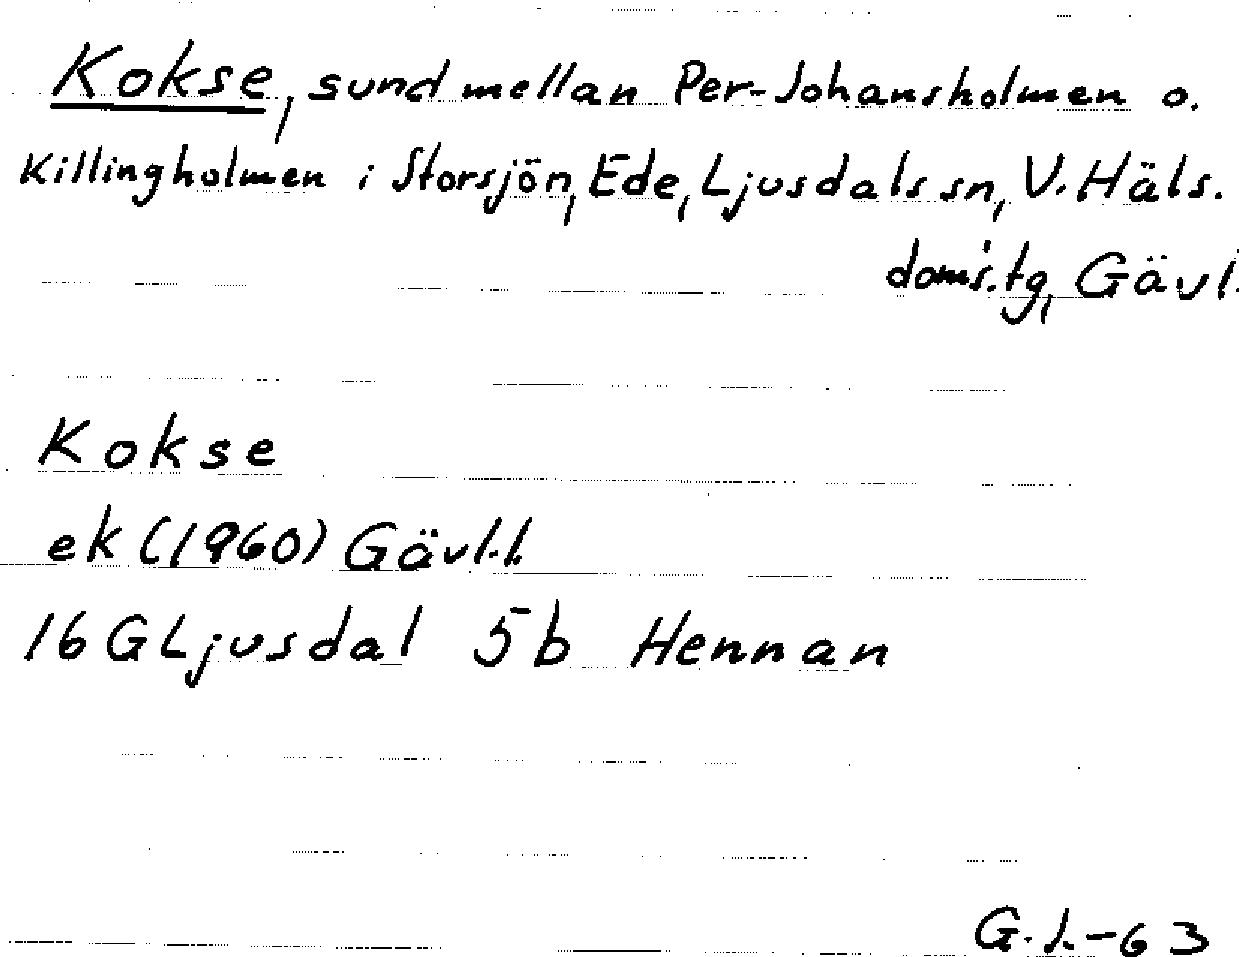 Kokse, sund mellan Per-Johansholmen o.
Killingholmen i Storsjön, Ede, Ljusdals sn, V. Häls.
doms.tg, Gävl.
Kokse
ek (1960) Gävl.l.
16 G Ljusdal 5b Hennan
G.L.-63